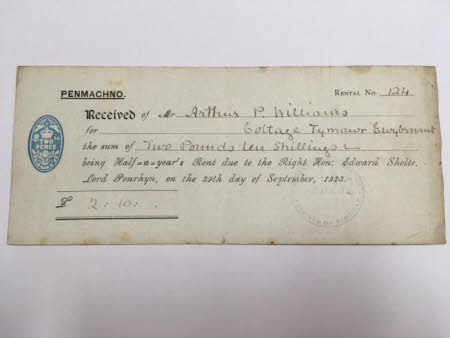 PENMACHNO.
RENTAL No. 124
Received of Mr Arthur P. Williams
for Cottage Tymawr Ewybrnant
the sum of Two Pounds ten Shillings
being Half-a-year's Rent due to the Right Hon. Edward Sholto,
Lord Penrhyn, on the 29th day of September, 1923.
£ 2 : 10 : -
TWO PENCE